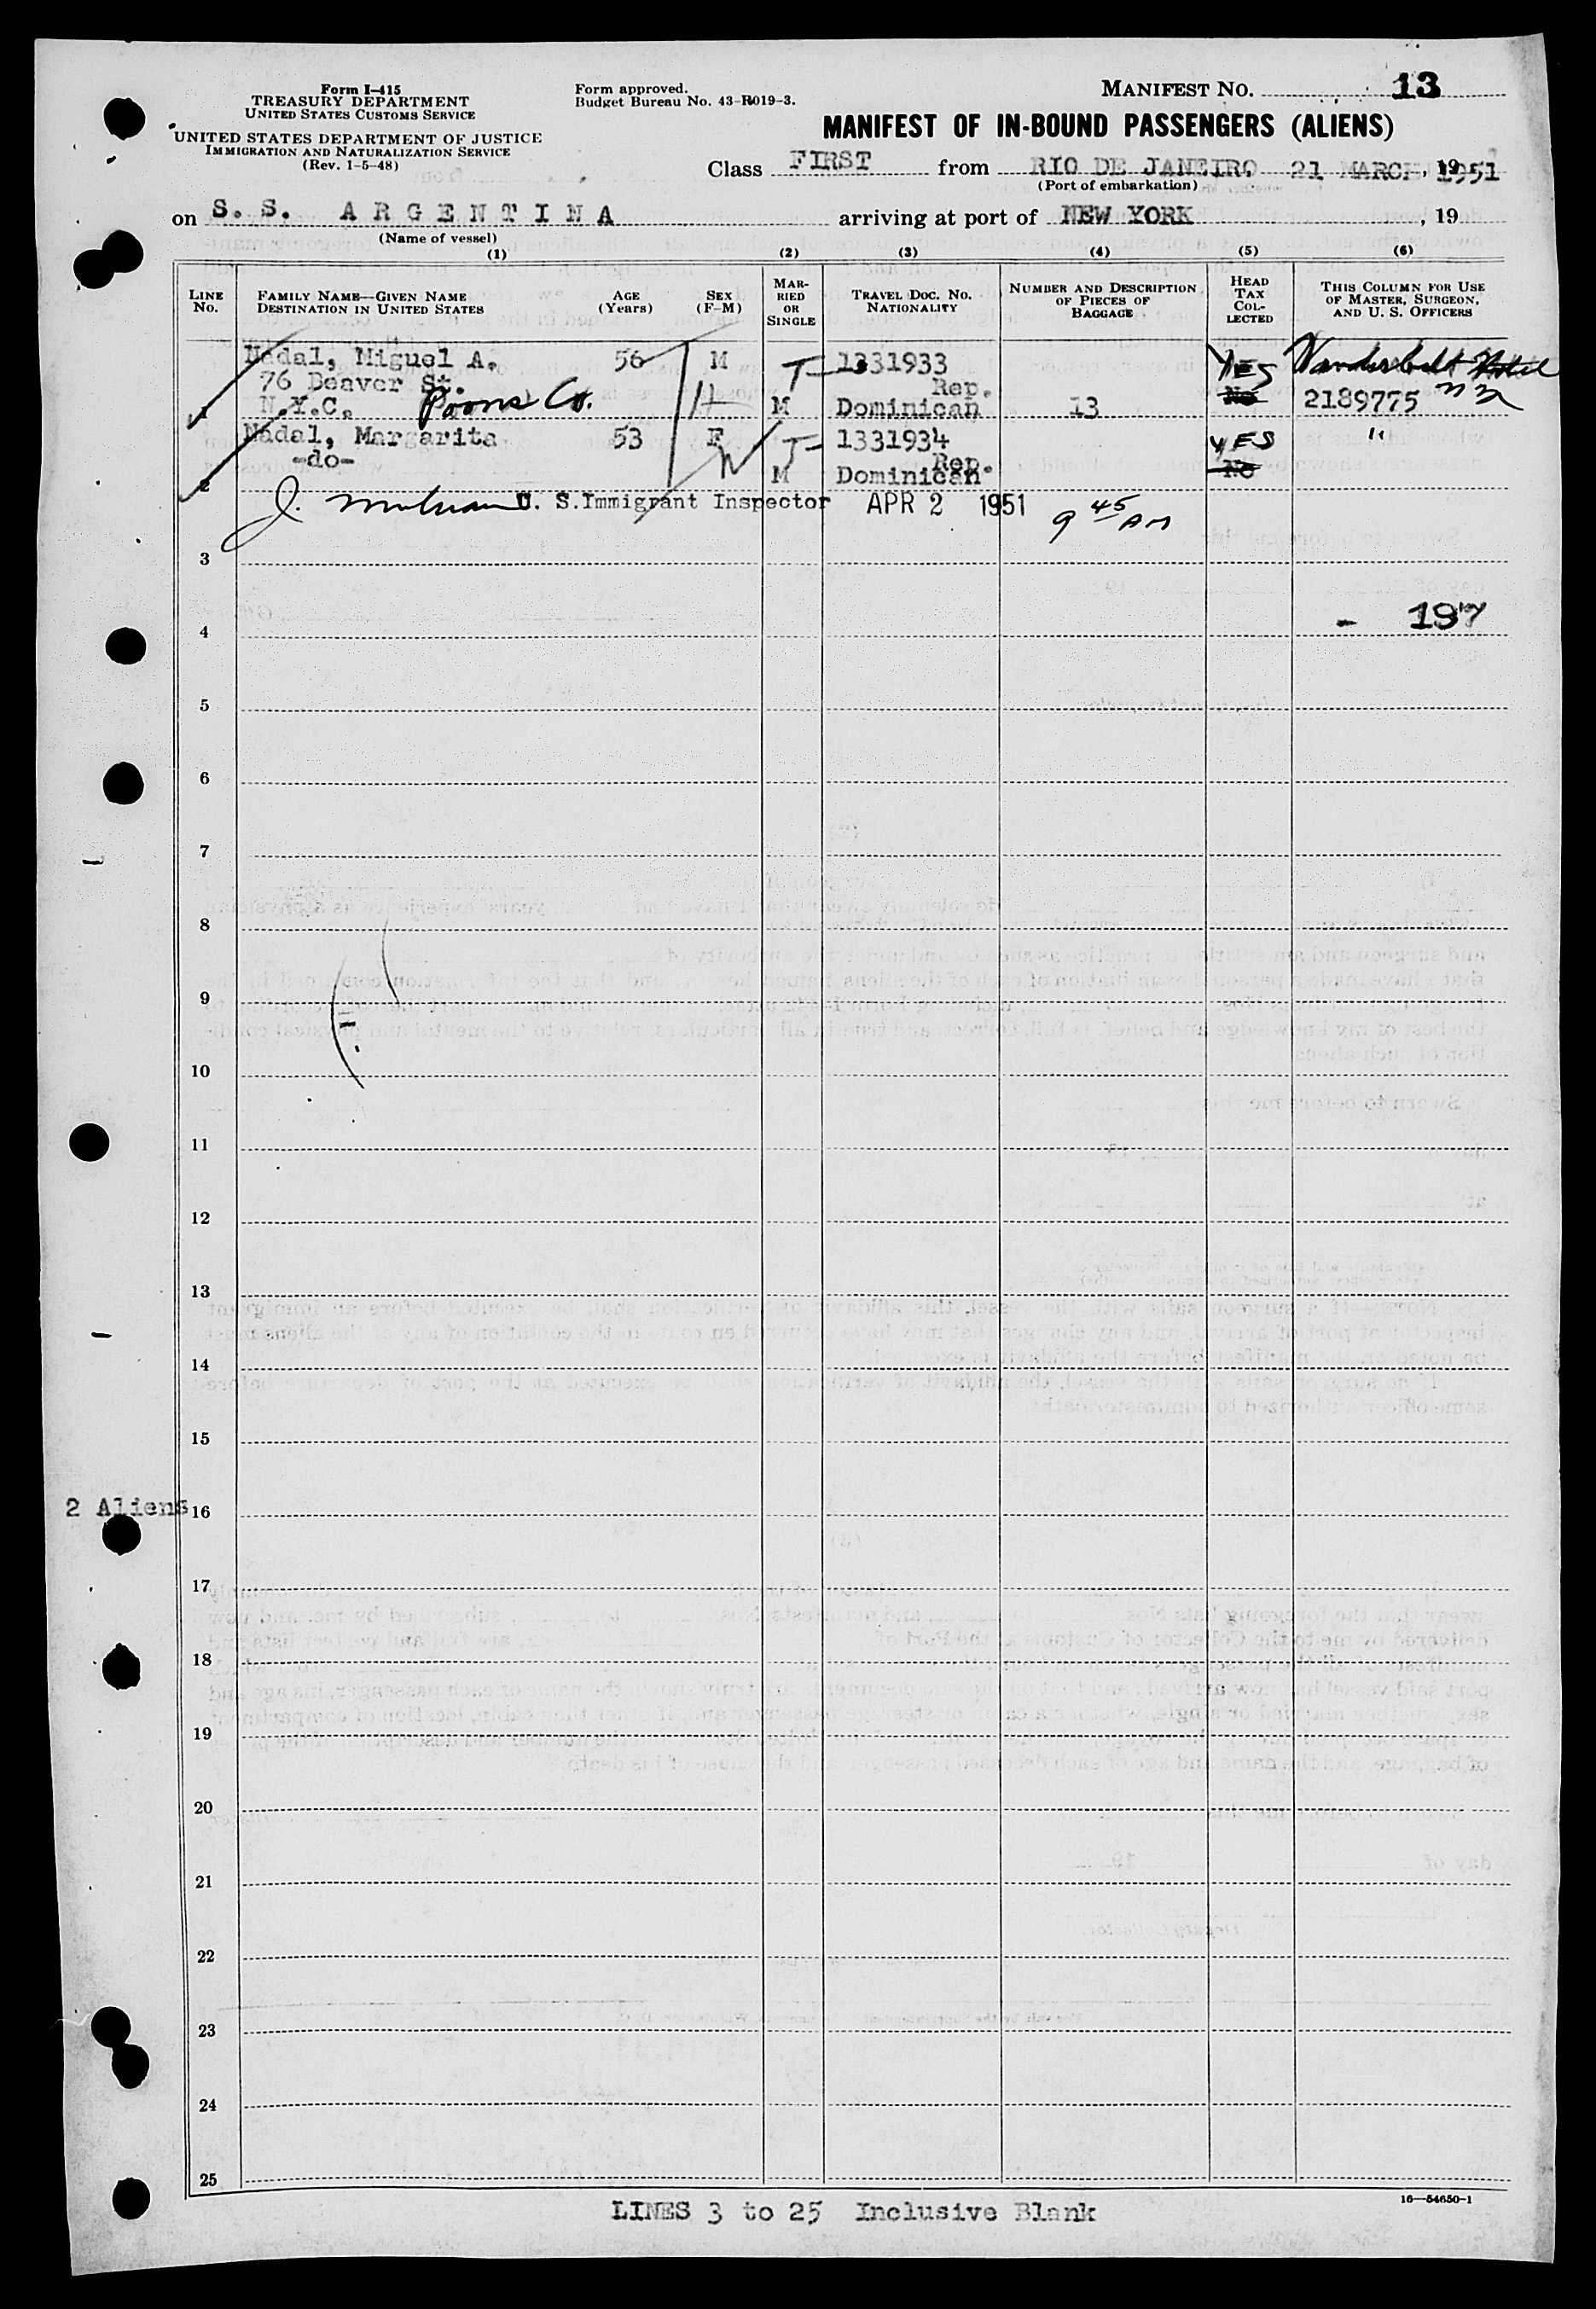 Form I-415
TREASURY DEPARTMENT
UNITED STATES CUSTOMS SERVICE
UNITED STATES DEPARTMENT OF JUSTICE
IMMIGRATION AND NATURALIZATION SERVICE
(Rev. 1-5-48)
Form approved.
Budget Bureau No. 43-R019-3.
MANIFEST NO. 13
MANIFEST OF IN-BOUND PASSENGERS (ALIENS)
Class FIRST from RIO DE JANEIRO 21 MARCH, 1951
(Port of embarkation)
on S. S. ARGENTINA arriving at port of NEW YORK, 19
(Name of vessel)
(1) (2) (3) (4) (5) (6)
LINE No. FAMILY NAME—GIVEN NAME DESTINATION IN UNITED STATES AGE (Years) SEX (F-M) MARRIED OR SINGLE TRAVEL DOC. NO. NATIONALITY NUMBER AND DESCRIPTION OF PIECES OF BAGGAGE HEAD TAX COLLECTED THIS COLUMN FOR USE OF MASTER, SURGEON, AND U. S. OFFICERS
Nadal, Miguel A. 56 M T- 1331933 YES Vanderbilt Hotel
76 Beaver St. Rep.
1 N.Y.C. Co. M Dominican 13 No 2189775
Nadal, Margarita 53 F T- 1331934 YES "
-do- Rep.
2 M Dominican No
J. U. S. Immigrant Inspector APR 2 1951 9 45 AM
3
4 - 197
5
6
7
8
9
10
11
12
13
14
15
2 Aliens 16
17
18
19
20
21
22
23
24
25
LINES 3 to 25 Inclusive Blank
16—54650-1